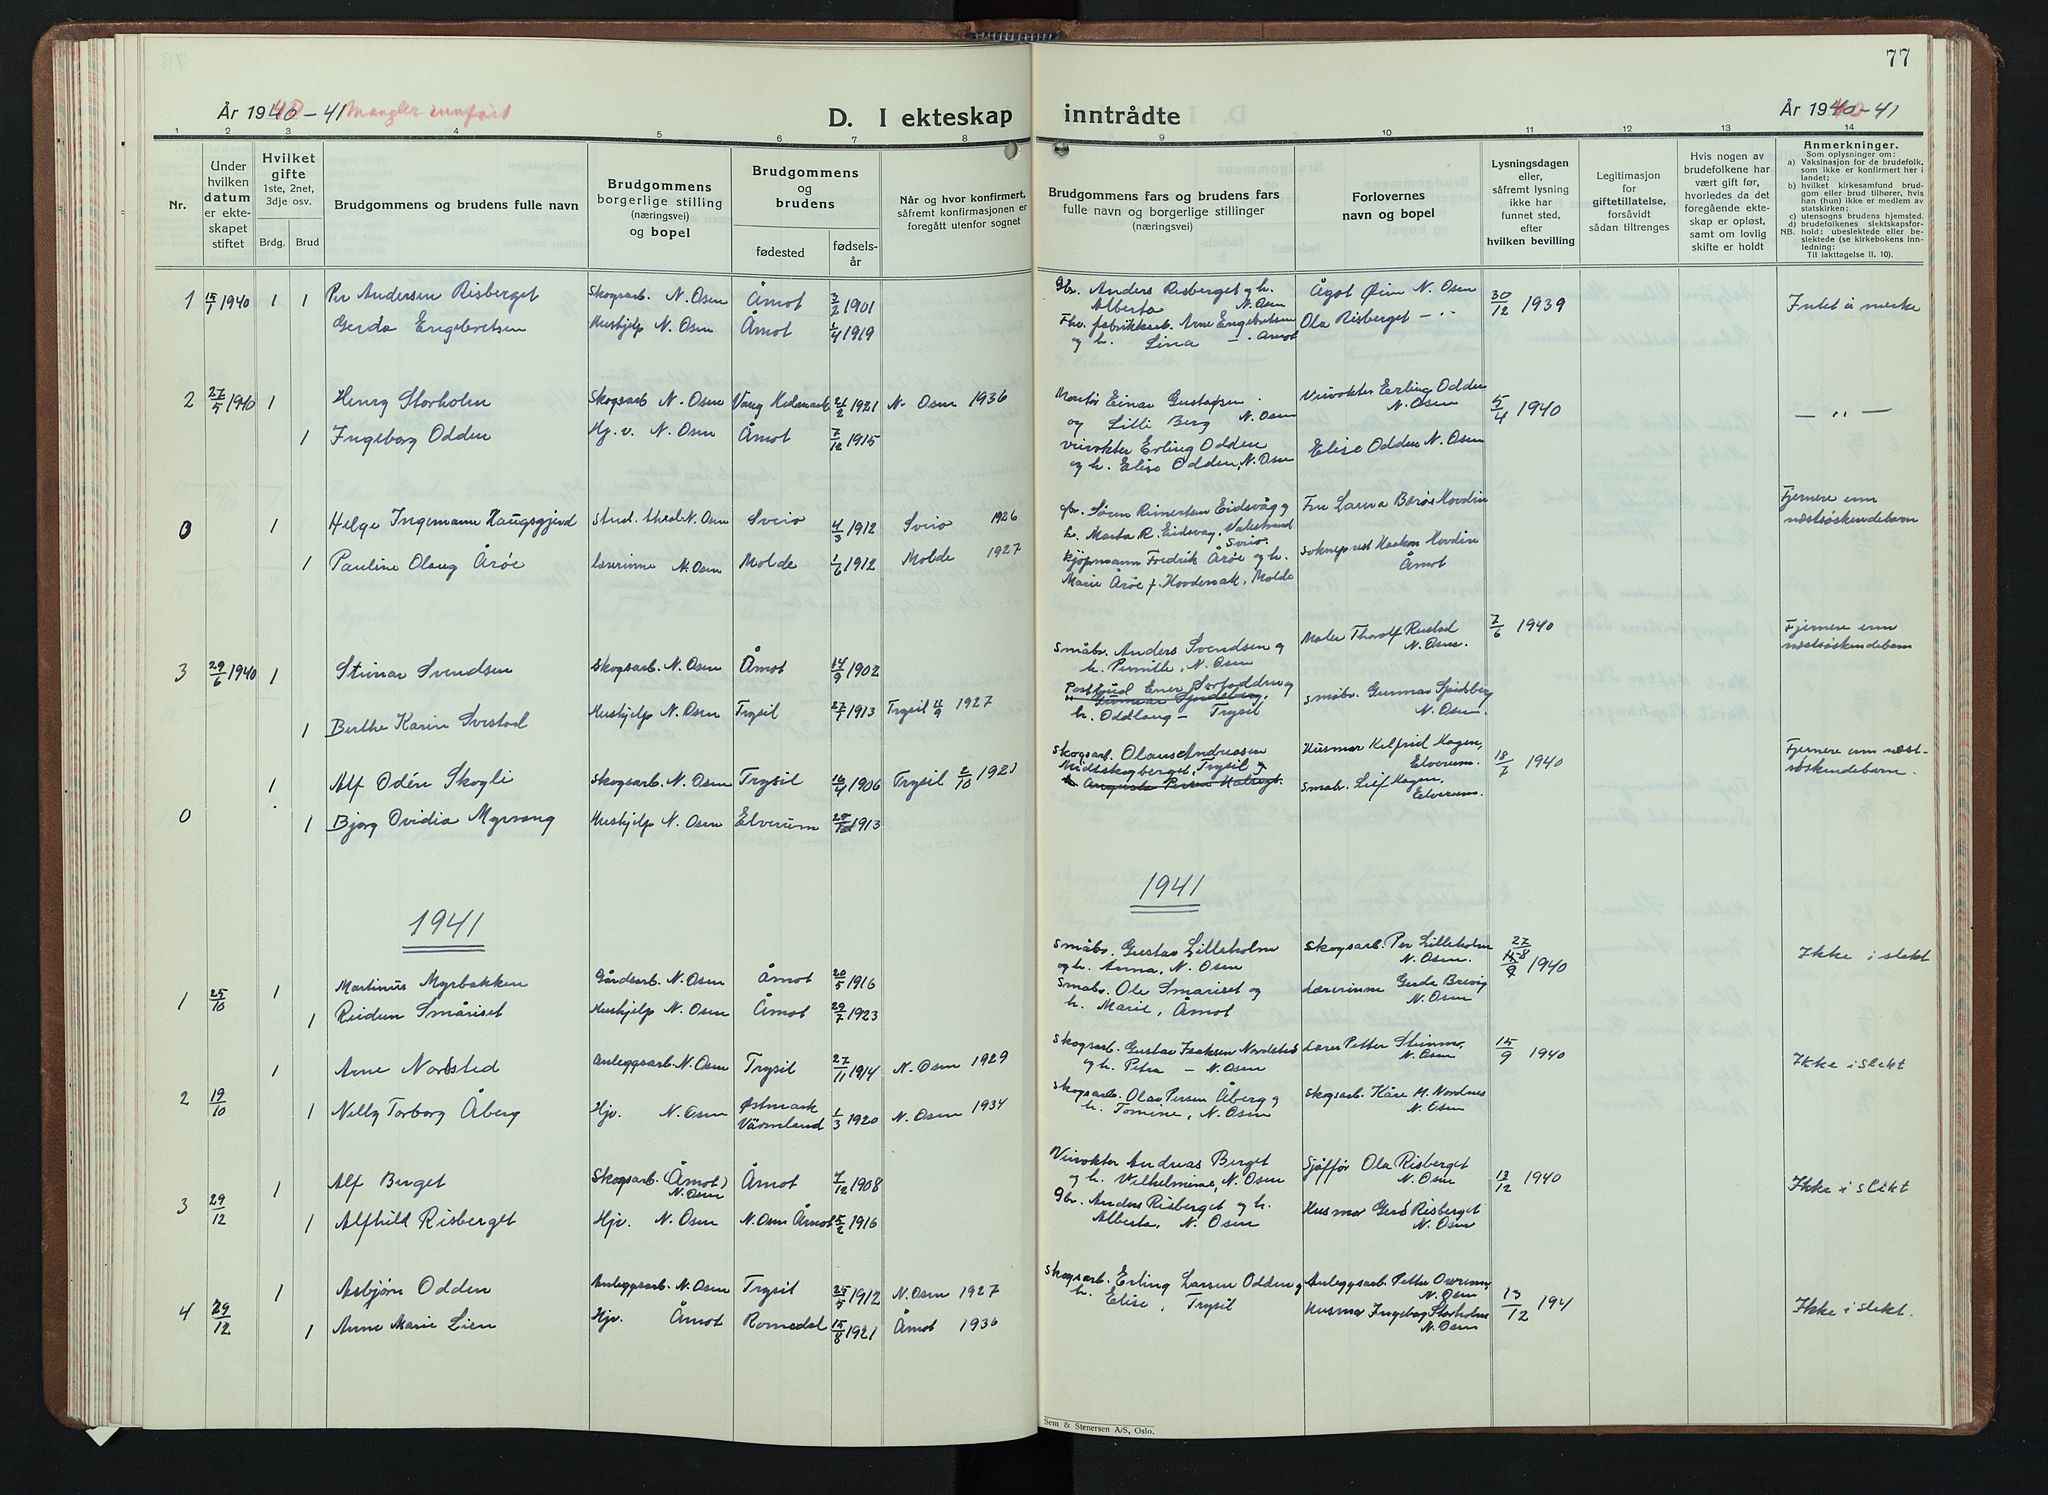 77
År 1940 - 41 Mangler innført
D. I ekteskap inntrådte
År 1940 - 41
1 2 3 4 5 6 7 8 9 10 11 12 13 14
Nr.
Under hvilken datum er ekteskapet stiftet
Hvilket gifte 1ste, 2net, 3dje osv.
Brdg. Brud
Brudgommens og brudens fulle navn
Brudgommens borgerlige stilling (næringsvei) og bopel
Brudgommens og brudens
fødested
fødselsår
Når og hvor konfirmert, såfremt konfirmasjonen er foregått utenfor sognet
Brudgommens fars og brudens fars fulle navn og borgerlige stillinger (næringsvei)
Forlovernes navn og bopel
Lysningsdagen eller, såfremt lysning ikke har funnet sted, efter hvilken bevilling
Legitimasjon for giftetillatelse, forsåvidt sådan tiltrenges
Hvis nogen av brudefolkene har vært gift før, hvorledes da det foregående ekteskap er opløst, samt om lovlig skifte er holdt
Anmerkninger.
Som oplysninger om:
a) Vaksinasjon for de brudefolk, som ikke er konfirmert her i landet;
b) hvilket kirkesamfund brudgom eller brud tilhører, hvis han (hun) ikke er medlem av statskirken;
c) utensogns brudens hjemsted.
d) brudefolkenes slektskapsforhold: ubeslektede eller beslektede (se kirkebokens innledning:
NB.
Til iakttagelse II. 10).
1 15/7 1940 1 1 Per Andersen Risberget Skogsarb. N. Osen Åmot 3/2 1901
Gerda Engebretsen Hushjelp N. Osen Åmot 1/4 1919
Gbr. Anders Risberget og h.
Alberta N. Osen
Fhv. fabrikkarb. Arne Engebretsen
og h. Lina - . Åmot
Ågot Øim N. Osen
Ola Risberget - " -
30/12 1939
Intet å merke
2 27/5 1940 1 Henry Storholm Skogsarb N. Osen Vang Hedmark 21/2 1921 N. Osen 1936
1 Ingeborg Odden Hj. v. N. Osen Åmot 7/12 1915
Montør Einar Gustafsen
og Lilli Berg N. Osen
veivokter Erling Odden
og h. Elise Odden, N. Osen
Veivokter Erling Odden
N. Osen
Elise Odden N. Osen
5/4 1940
— " —
0 1 Helge Ingemann Haugsgjerd Stud. theol. N. Osen Sveio 4/3 1912 Sveio 1926
1 Pauline Olaug Årøe Lærerinne N. Osen Molde 1/6 1912 Molde 1927
gbr. Søren Reinertsen Eidsvåg og
h. Marta R. Eidsvåg, Valestrand
Sveio.
Kjøpmann Fredrik Årøe og h.
Marie Årøe f. Hovdenak, Molde
Fru Laura Barøe Hovdin
Sokneprest Haakon Hovdin
Åmot
Fjernere enn
næstsøskendebarn
3 29/6 1940 1 Steinar Svendsen Skogsarb. N. Osen Åmot 14/9 1902
1 Berthe Karin Svestad Hushjelp N. Osen Trysil 27/7 1913 Trysil 11/9 1927
Småbr. Anders Svendsen og
h. Pernille, N. Osen
h. Oddlaug - Trysil
Maler Thorolf Rustad
N. Osen.
Småbr. Gunnar Spidsberg
N. Osen.
7/6 1940
Fjernere enn
næstsøskendebarn
0 1 Alf Odén Skogli Skogsarb. N. Osen Trysil 16/4 1906 Trysil 2/10 1921
1 Bjørg Ovidia Myrvang Hushjelp N. Osen Elverum 1913
Skogsarb. Olaus Andreasen
Midtskogberget, Trysil og
Husmor Helfrid Hagen,
Elverum.
Småbr. Leif Hagen,
Elverum.
18/7 1940
Fjernere enn næst-
søskendebarn.
1941
1941
1 25/10 1 Martinus Myrbakken Gårdsarb. N. Osen Åmot 20/5 1916
1 Reidun Småriset Hushjelp N. Osen Åmot 29/7 1923
Småbr. Gustav Lilleholm
og h. Anna, N. Osen
Småbr. Ole Småriset og
h. Marie, Åmot
Skogsarb. Per Lilleholm
N. Osen
Lærerinne Gerda Breivig
N. Osen
27/8
15/9 1940
Ikke i slekt
2 19/10 1 Arne Nordsted Anleggsarb. N. Osen Trysil 27/11 1914 N. Osen 1929
1 Nelly Torborg Åberg Hjv. N. Osen Østmark Värmland 1/3 1920 N. Osen 1934
Skogsarb. Gustav Isaksen Nordsted
og h. Petra - N. Osen
Skogsarb. Olav Persen Åberg og
h. Tomine, N. Osen
Lærer Petter Stimmo,
N. Osen
Skogsarb. Kåre M. Nordnes
N. Osen
15/9 1940
Ikke i slekt
3 29/12 1 Alf Berget Skogsarb. (Åmot) N. Osen Åmot 4/12 1908
1 Alfhild Risberget Hjv. N. Osen N. Osen Åmot 15/2 1916
Veivokter Andreas Berget
og h. Wilhelmine, N. Osen
Gbr. Anders Risberget og h.
Alberta, N. Osen
Sjåffør Ola Risberget
N. Osen
Husmor Gerd Risberget
N. Osen
13/12 1940
Ikke i slekt
4 29/12 1 Asbjørn Odden Anleggsarb. N. Osen Trysil 25/5 1912 N. Osen 1927
1 Anne Marie Lien Hjv. Åmot Romedal 15/8 1921 Åmot 1936
Skogsarb. Erling Larsen Odden og
h. Elise, Trysil
Anleggsarb. Petter Overmo,
N. Osen
Husmor Ingeborg Storholm
N. Osen
13/12 194
Ikke i slekt.
Sem & Stenersen A/S, Oslo.